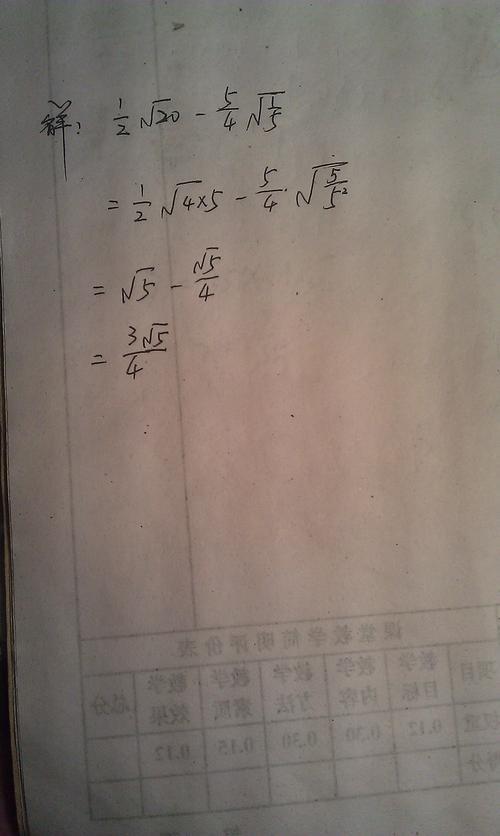 解: 1/2 √20 - 5/4 √1/5
= 1/2 √4×5 - 5/4 · √5/5²
= √5 - √5/4
= 3√5/4
课堂教学简明评价表
项目 教学目标 教学内容 教学方法 教学素质 教学效果 总分
权重 0.12 0.30 0.30 0.15 0.12